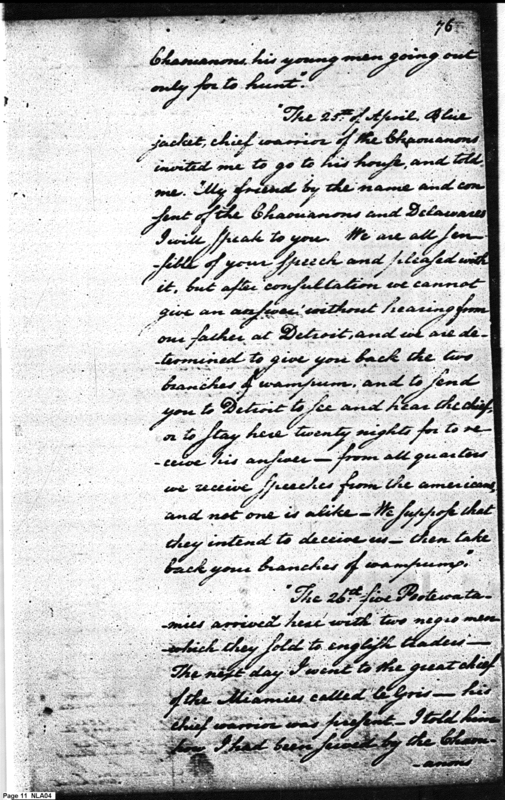 76
Chaouanons, his young men going out
only for to hunt".
"The 25th of April Blue
jacket, chief warrior of the Chaouanons
invited me to go to his house, and told
me. "My friend by the name and con
sent of the Chaouanons and Delawares
I will speak to you. We are all sen-
-sible of your speech and pleased with
it, but after consultation we cannot
give an answer without hearing from
our father at Detroit, and we are de-
-termined to give you back the two
branches of wampum, and to send
you to Detroit to see and hear the chief,
or to stay here twenty nights for to re-
-ceive his answer — from all quarters
we receive speeches from the americans,
and not one is alike — We suppose that
they intend to deceive us — then take
back your branches of wampum".
"The 26th five Potewata-
-mies arrived here with two negro men
which they sold to english traders —
The next day I went to the great chief
of the Miamies called le Gris — his
chief warrior was present — I told him
how I had been served by the Chaou-
-anons
Page 11 NLA04